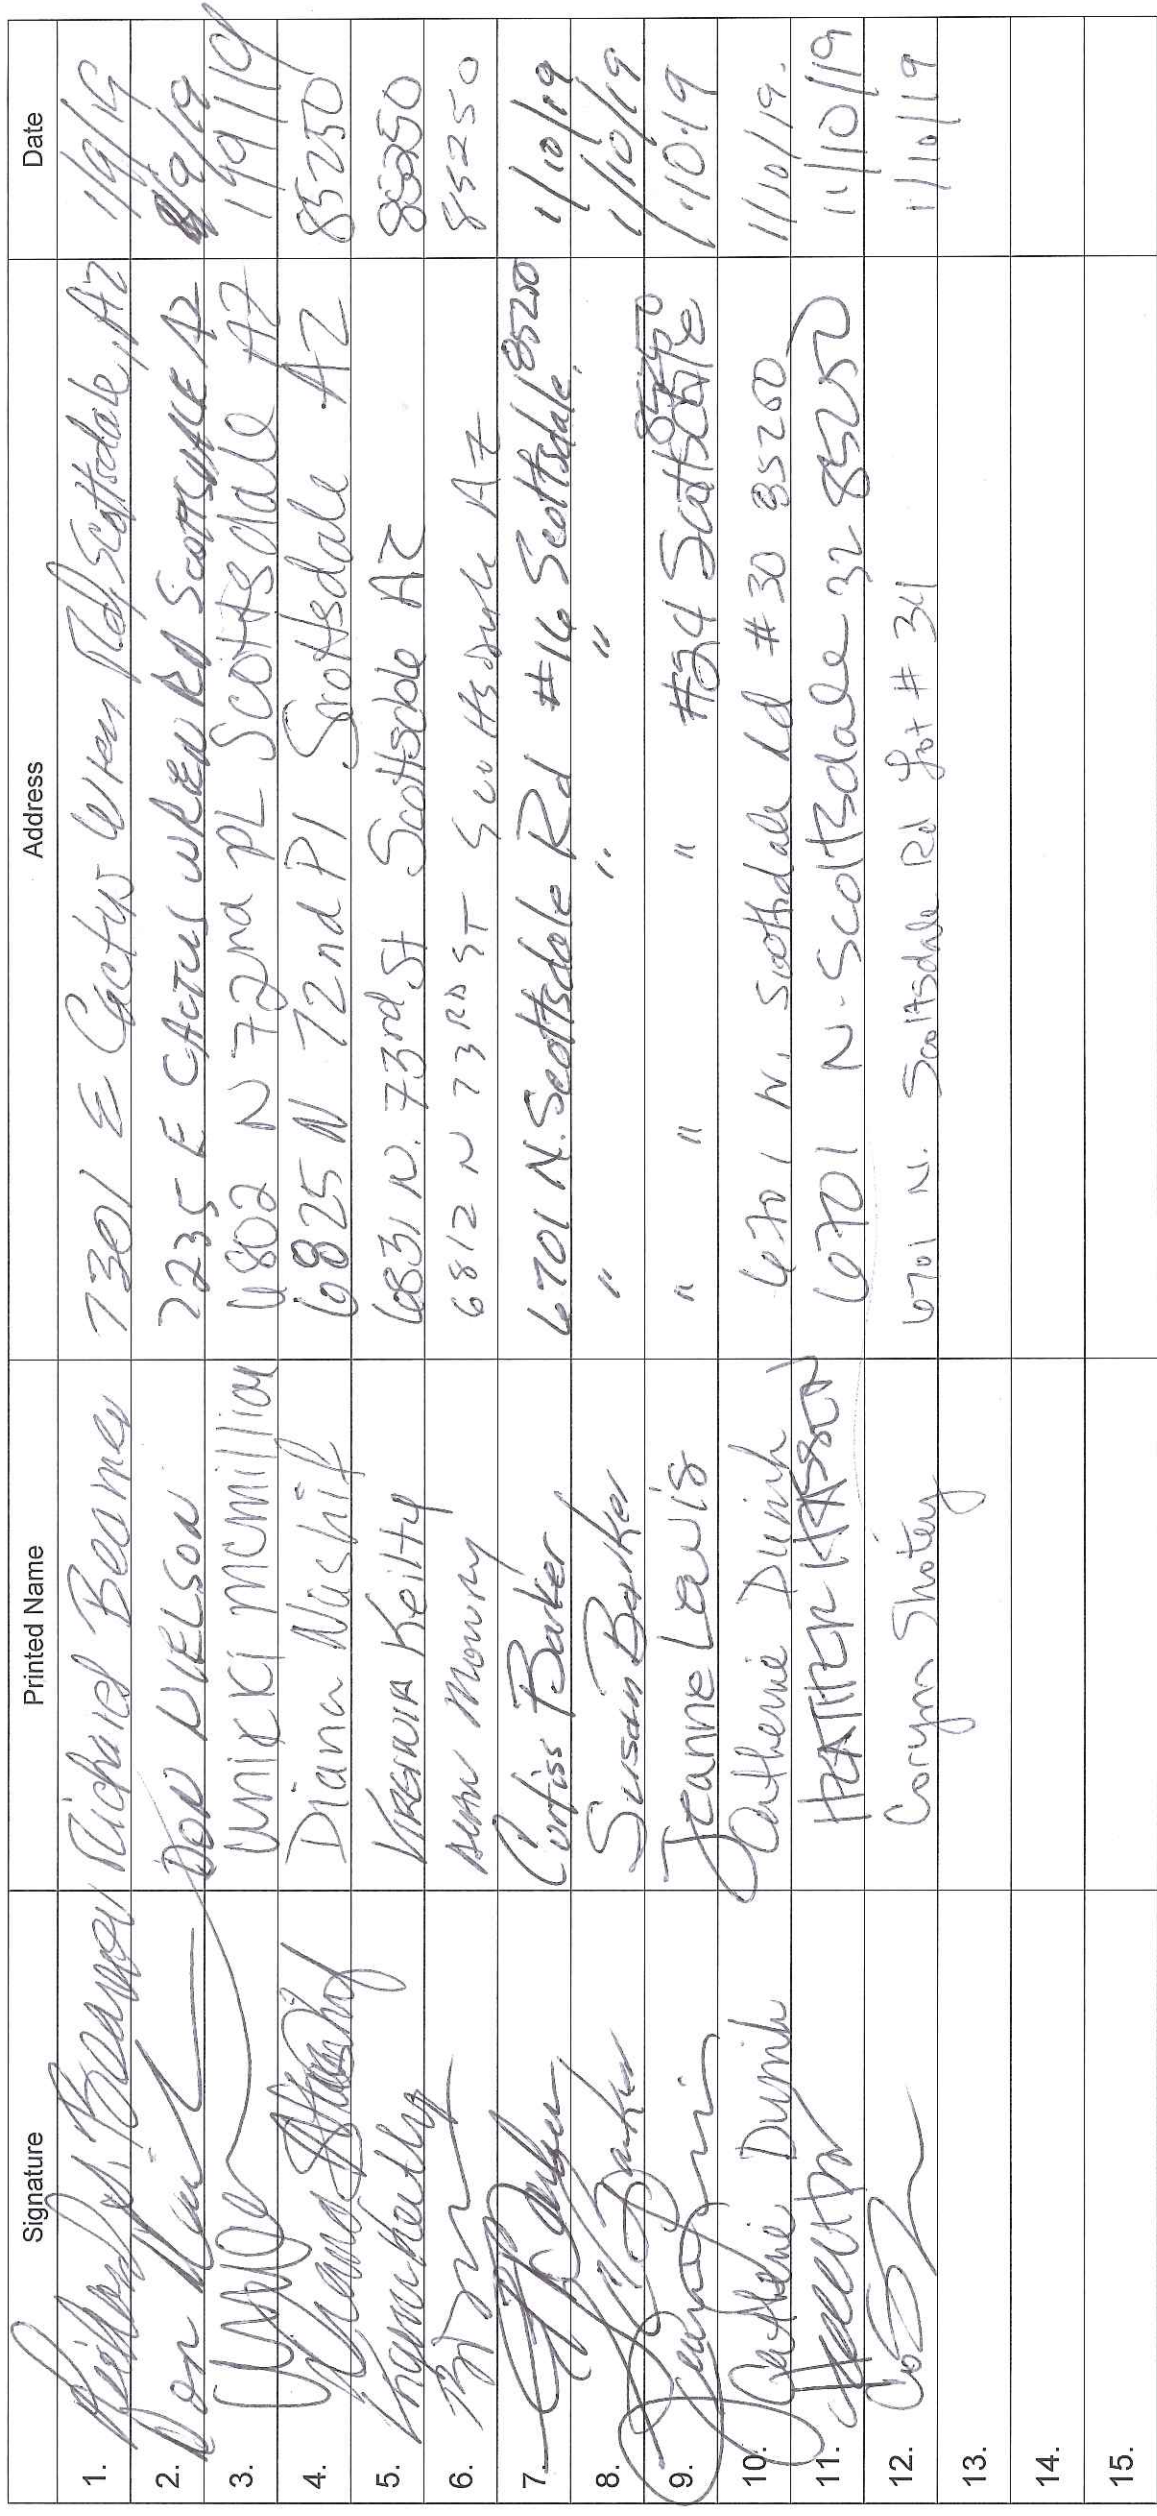 Signature Printed Name Address Date
1. Richard Beamer 7301 E Cactus Wren Rd, Scottsdale, AZ 1/9/19
2. Don Nielson DON NIELSON 7235 E CACTUS WREN RD SCOTTSDALE AZ 1/9/19
3. McMillian 6802 N 72nd PL Scottsdale AZ 1/9/119
4. Diana Nashif Diana Nashif 6825 N 72nd Pl Scottsdale AZ 85250
5. Virginia Keilty VIRGINIA Keilty 6831 N. 73rd St Scottsdale AZ 85250
6. Mowry 6812 N 73RD ST Scottsdale AZ 85250
7. Curtiss Barker 6701 N. Scottsdale Rd #16 Scottsdale, 85250 1/10/19
8. Susan Barker " " " 1/10/19
9. Jeanne Lewis " " " #24 Scottsdale 85250 1/10/19
10. Catherine Dunich Catherine Dunich 6701 N. Scottsdale Rd #30 85250 1/10/19.
11. HEATHER KASSON 6701 N. Scottsdale 32 85250 1/10/19
12. Coryn Shotey 6701 N. Scottsdale Rd Lot #34 1/10/19
13.
14.
15.